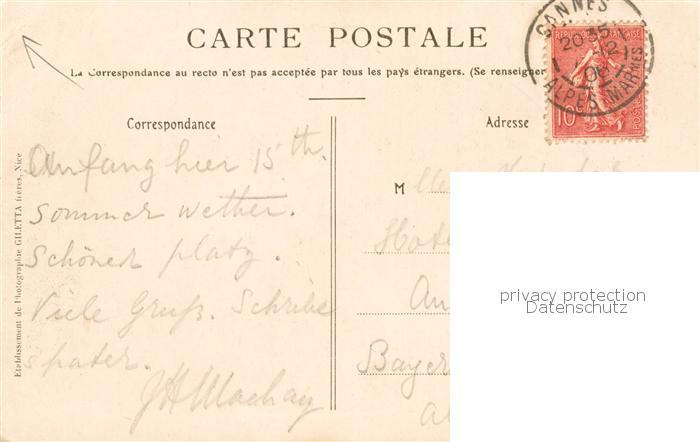 CARTE POSTALE
La Correspondance au recto n'est pas acceptée par tous les pays étrangers. (Se renseigner
CANNES
20
12
06
ALPES MARMES
REPUBLIQUE FRANÇAISE
10
POSTES
Correspondance
Adresse
Anfang hier 15th.
Sommer wether.
Schöner platz.
Viele Gruß. Schribe
spater.
M
Hote
Bayer
privacy protection
Datenschutz
Etablissement de Photographie GILETTA frères, Nice